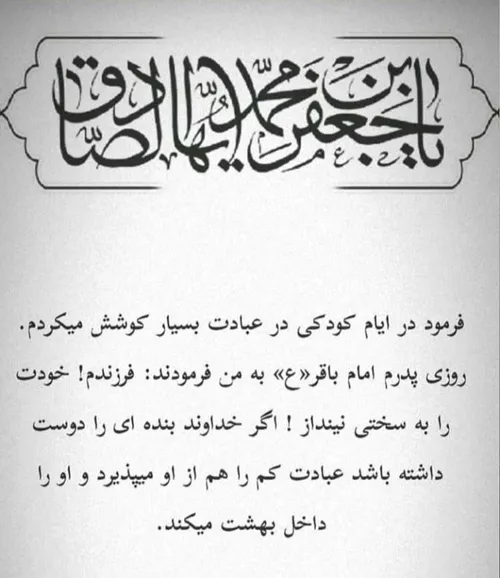 یا جعفر بن محمد ایها الصادق
فرمود در ایام کودکی در عبادت بسیار کوشش میکردم.
روزی پدرم امام باقر«ع» به من فرمودند: فرزندم! خودت
را به سختی نینداز ! اگر خداوند بنده ای را دوست
داشته باشد عبادت کم را هم از او میپذیرد و او را
داخل بهشت میکند.